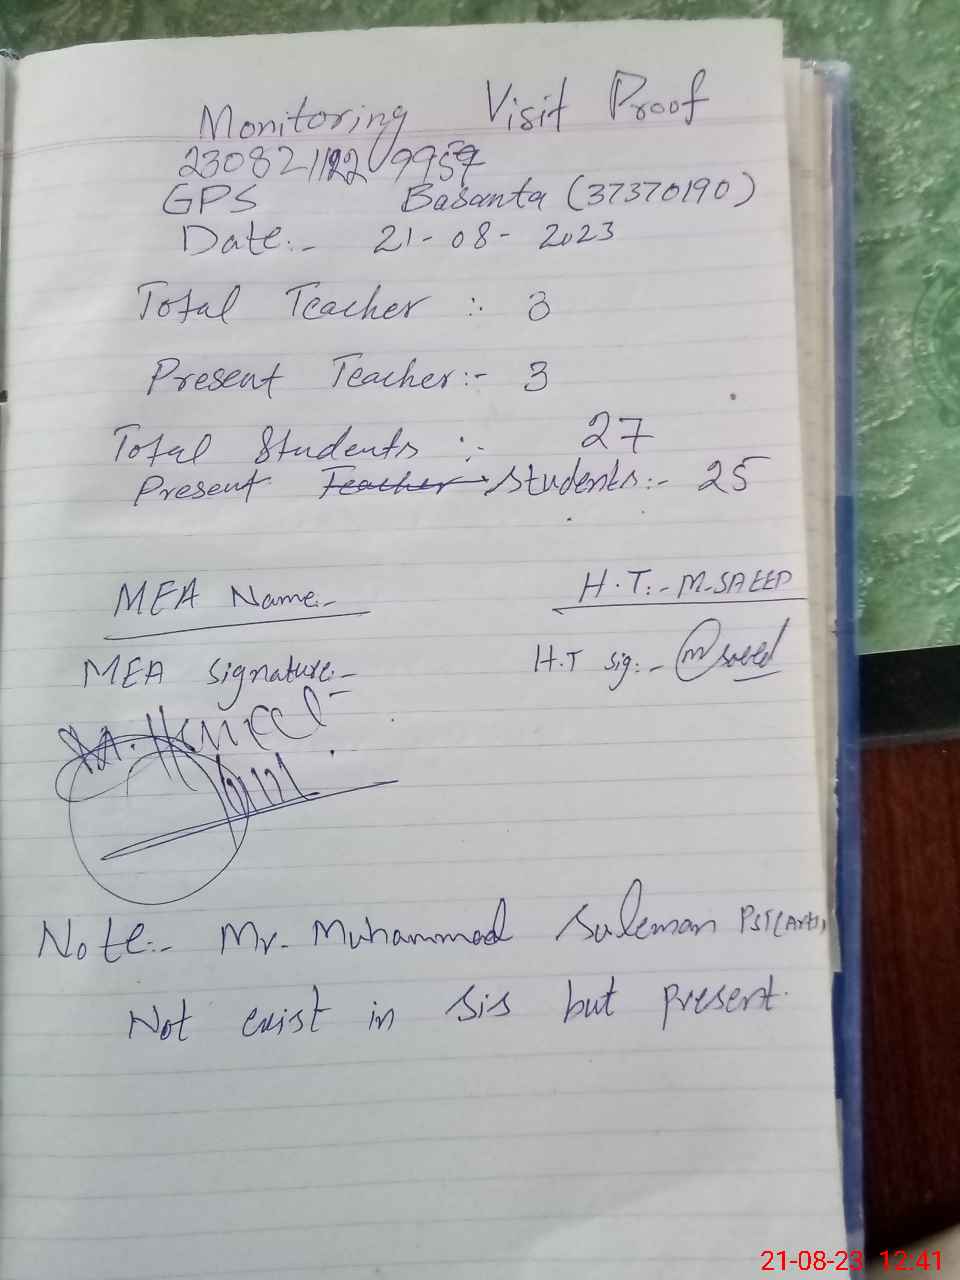 Monitoring Visit Proof
GPS Basanta (37370190)
Date:- 21-08-2023
Total Teacher :- 3
Present Teacher:- 3
Total Students :- 27
Present Teacher Students:- 25
MEA Name:- H.T:- M.SAEED
MEA Signature:- H.T sig:- M Saeed
Note:- Mr. Muhammad Suleman PST(Arts)
Not exist in sis but present.
21-08-23 12:41